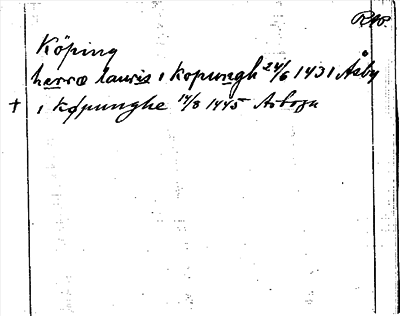 RAP.
Köping
herra lauris i kopungh 24/6 1431 Åsby
+ i Køpunghe 14/8 1445 Arboga